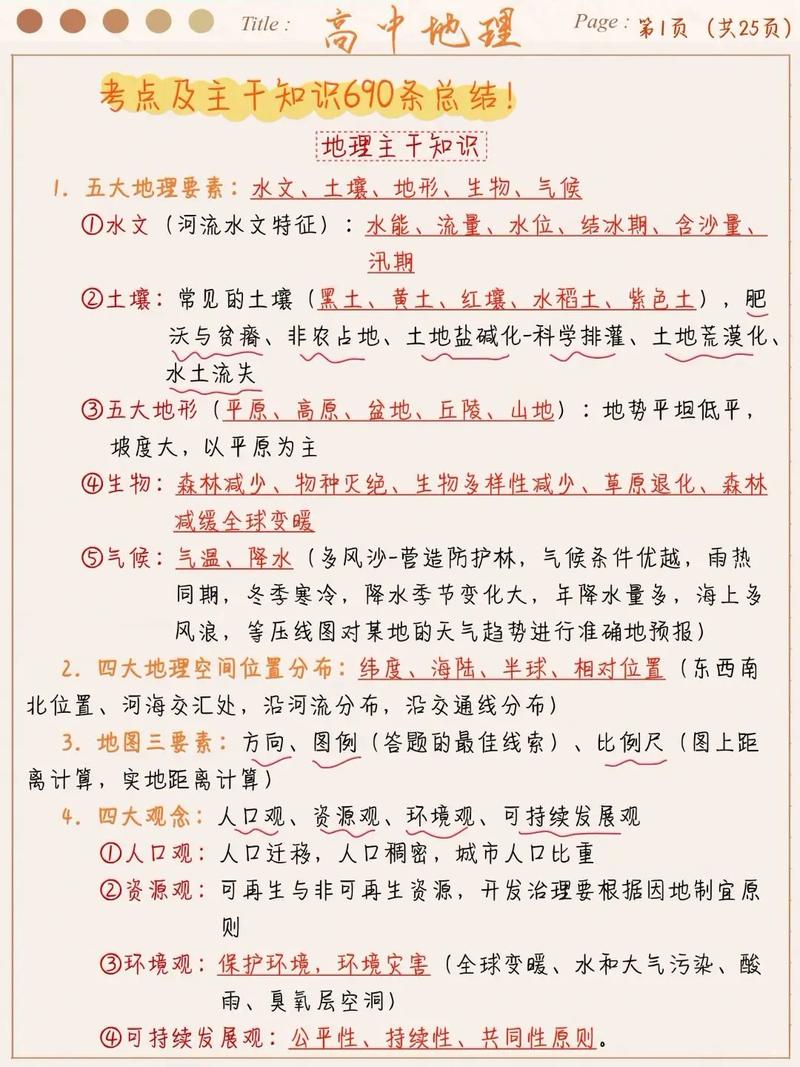 Title: 高中地理 Page: 第1页（共25页）
考点及主干知识690条总结！
地理主干知识
1. 五大地理要素：水文、土壤、地形、生物、气候
①水文（河流水文特征）：水能、流量、水位、结冰期、含沙量、
汛期
②土壤：常见的土壤（黑土、黄土、红壤、水稻土、紫色土），肥
沃与贫瘠、非农占地、土地盐碱化-科学排灌、土地荒漠化、
水土流失
③五大地形（平原、高原、盆地、丘陵、山地）：地势平坦低平，
坡度大，以平原为主
④生物：森林减少、物种灭绝、生物多样性减少、草原退化、森林
减缓全球变暖
⑤气候：气温、降水（多风沙-营造防护林，气候条件优越，雨热
同期，冬季寒冷，降水季节变化大，年降水量多，海上多
风浪，等压线图对某地的天气趋势进行准确地预报）
2. 四大地理空间位置分布：纬度、海陆、半球、相对位置（东西南
北位置、河海交汇处，沿河流分布，沿交通线分布）
3. 地图三要素：方向、图例（答题的最佳线索）、比例尺（图上距
离计算，实地距离计算）
4. 四大观念：人口观、资源观、环境观、可持续发展观
①人口观：人口迁移，人口稠密，城市人口比重
②资源观：可再生与非可再生资源，开发治理要根据因地制宜原
则
③环境观：保护环境，环境灾害（全球变暖、水和大气污染、酸
雨、臭氧层空洞）
④可持续发展观：公平性、持续性、共同性原则。